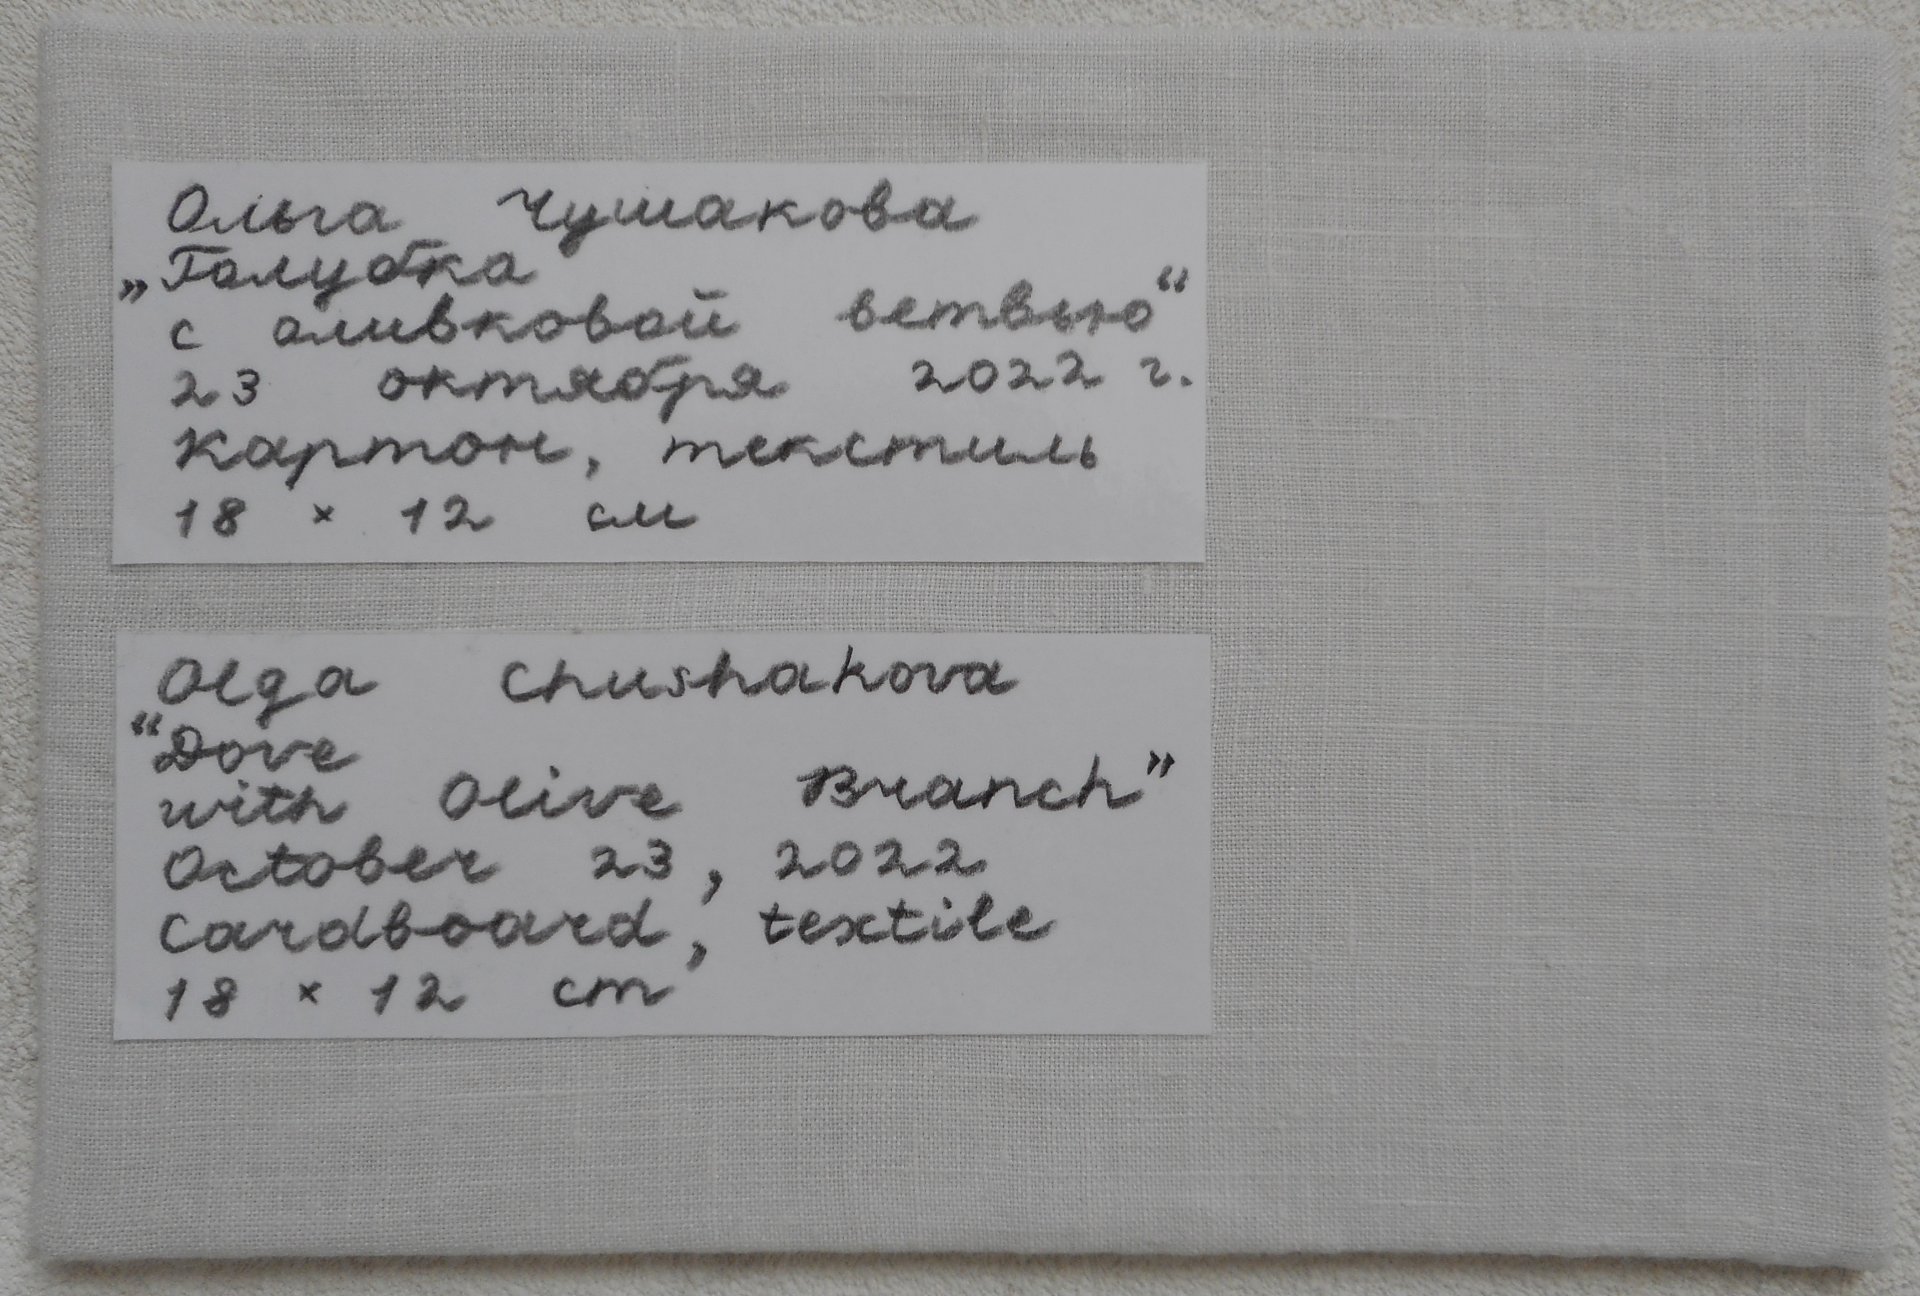 Ольга Чушакова
„Голубка
с оливковой ветвью“
23 октября 2022 г.
Картон, текстиль
18 × 12 см
Olga Chushakova
“Dove
with Olive Branch”
October 23, 2022
Cardboard, textile
18 × 12 cm